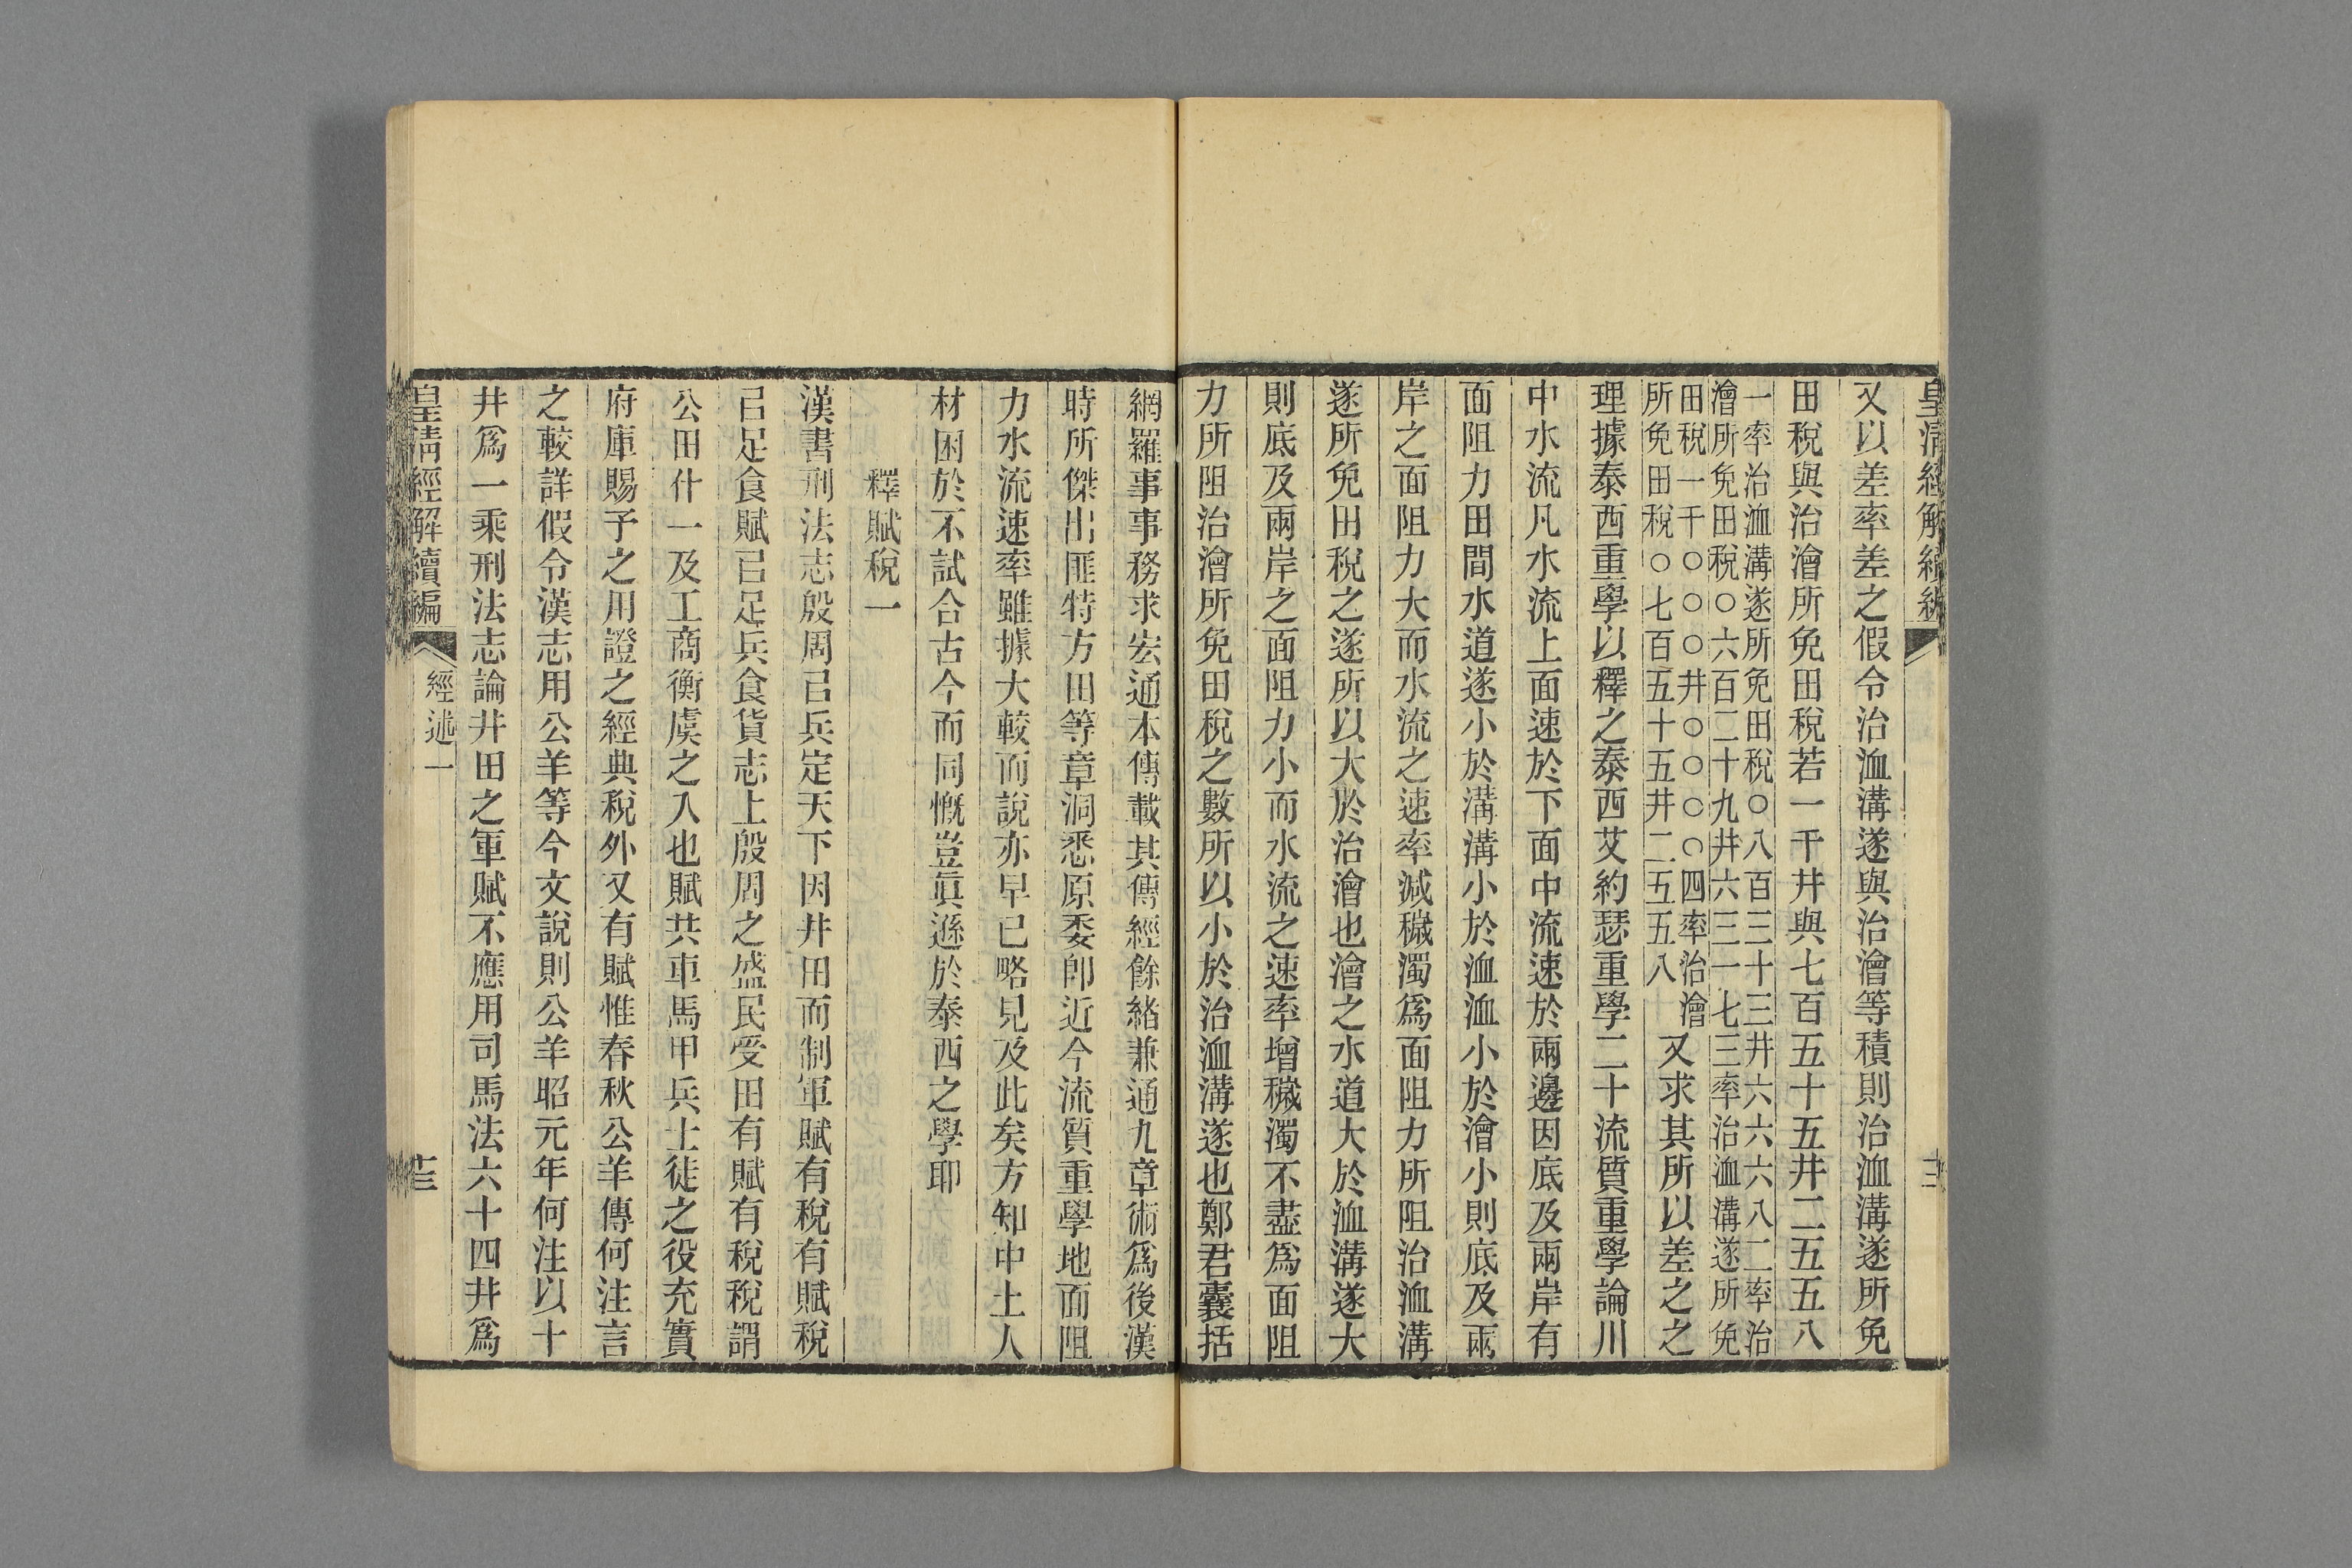 皇清經解續編
又以差率差之假令治洫溝遂與治澮等積則治洫溝遂所免
田稅與治澮所免田稅若一千井與七百五十五井二五五八
一率治洫溝遂所免田稅〇八百三十三井六六六八二率治
澮所免田稅〇六百二十九井六三一七三率治洫溝遂所免
田稅一千〇〇〇井〇〇〇〇四率治澮
所免田稅〇七百五十五井二五五八
又求其所以差之之
理據泰西重學以釋之泰西艾約瑟重學二十流質重學論川
中水流凡水流上面速於下面中流速於兩邊因底及兩岸有
面阻力田間水道遂小於溝溝小於洫洫小於澮小則底及兩
岸之面阻力大而水流之速率減穢濁爲面阻力所阻治洫溝
遂所免田稅之遂所以大於治澮也澮之水道大於洫溝遂大
則底及兩岸之面阻力小而水流之速率增穢濁不盡爲面阻
力所阻治澮所免田稅之數所以小於治洫溝遂也鄭君囊括
網羅事事務求宏通本傳載其傳經餘緒兼通九章術爲後漢
時所傑出匪特方田等章洞悉原委卽近今流質重學地面阻
力水流速率雖據大較而說亦早已略見及此矣方知中土人
材困於不試合古今而同慨豈眞遜於泰西之學耶
釋賦稅一
漢書刑法志殷周已兵定天下因井田而制軍賦有稅有賦稅
已足食賦已足兵食貨志上殷周之盛民受田有賦有稅稅謂
公田什一及工商衡虞之入也賦共車馬甲兵士徒之役充實
府庫賜予之用證之經典稅外又有賦惟春秋公羊傳何注言
之較詳假令漢志用公羊等今文說則公羊昭元年何注以十
井爲一乘刑法志論井田之軍賦不應用司馬法六十四井爲
皇清經解續編
經述一
十三